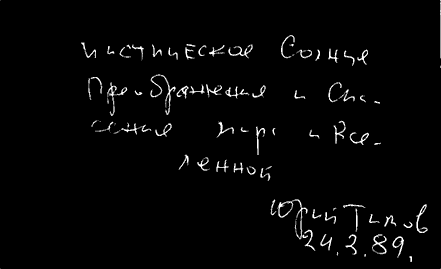 мистическое Солнце
Преображения и Спа-
сения мира и Все-
ленной
Юрий Титов
24.3.89.